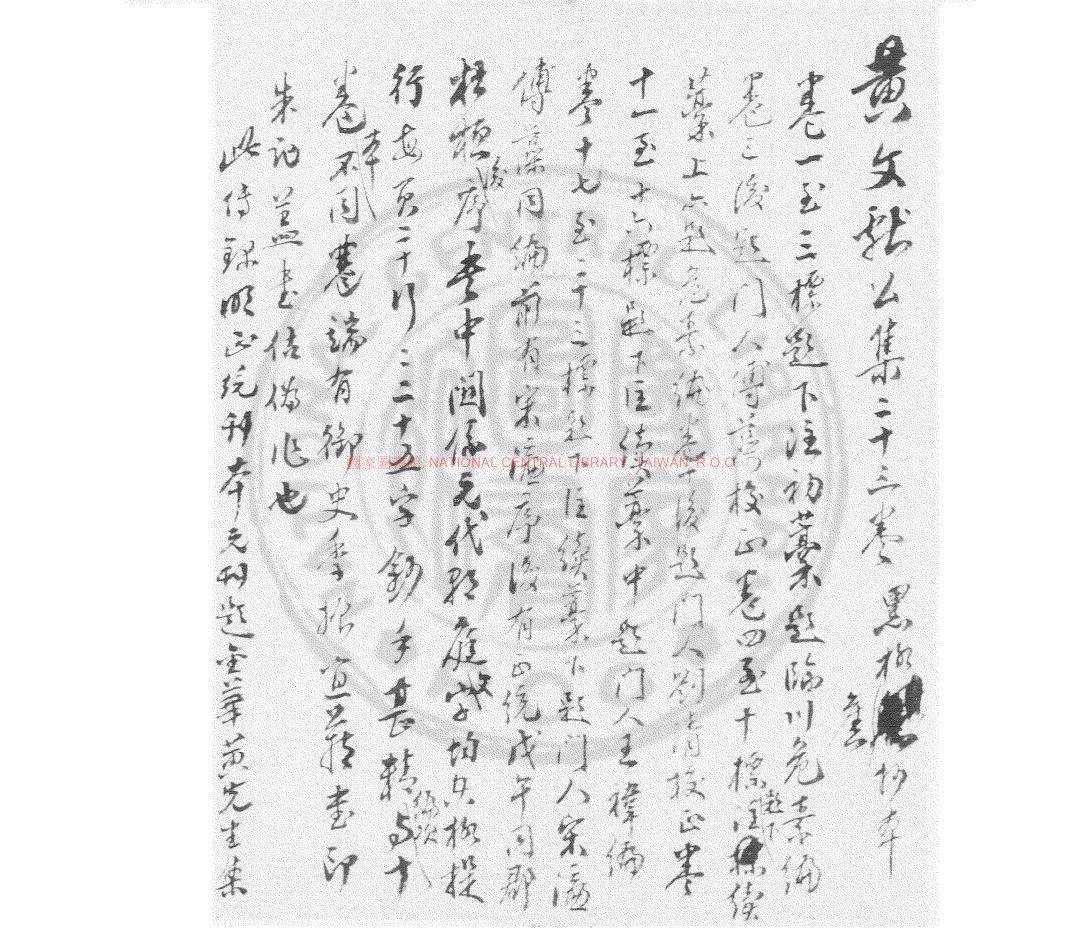 黄文獻公集二十三卷 黑格舊抄本
卷一至三標題下注初藁題臨川危素編
卷三後題門人傅藻校正卷四至十標題下注續
藁上亦題危素編卷十後題門人劉涓校正卷
十一至十六標題下注續藁中題門人王褘編
卷十七至二十三標題下注續藁下題門人宋濂
傅藻同編前有宋濂序後有正統戊午同郡
杜桓後序書中關係元代朝廷字均空格提
行每頁二十行行二十五字鈔手甚精與十
卷本不同卷端有御史季振宜藏書印
朱記蓋書估偽作也
此傳錄明正統刊本元刊題金華黃先生集
國家圖書館 NATIONAL CENTRAL LIBRARY, TAIWAN, R.O.C
NATIONAL CENTRAL LIBRARY
R.O.C.